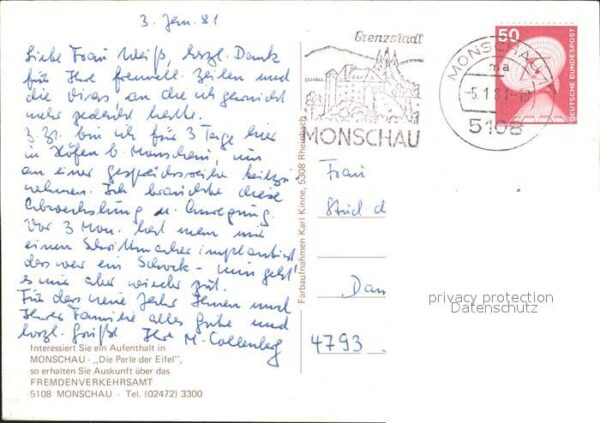 3. Jan. 81
Liebe Frau Weiß, herzl. Dank
für Ihre freundl. Zeilen und
die Dias an die ich gar nicht
mehr gedacht hatte.
Z. Zt. bin ich für 3 Tage hier
in Höfen b. Monschau, um
an einer Gesprächsreihe
nehmen. Ich brauchte diese
Abwechslung u. Anregung.
Vor 3 Mon. hat man mir
einen Schrittmacher implantiert
das war ein Schock - nun geht
es mir aber wieder gut.
Für das neue Jahr Ihnen und
Ihrer Familie alles Gute und
herzl. Grüße Ihre M. Collenberg
Interessiert Sie ein Aufenthalt in
MONSCHAU - „Die Perle der Eifel",
so erhalten Sie Auskunft über das
FREMDENVERKEHRSAMT
5108 MONSCHAU - Tel. (02472) 3300
Farbaufnahmen Karl Kinne, 5308 Rheinbach
Grenzstadt
MONSCHAU
MONSCHAU
ma
-5.1.81-
5108
50
DEUTSCHE BUNDESPOST
Frau
Stud. d
Dan
4793
privacy protection
Datenschutz